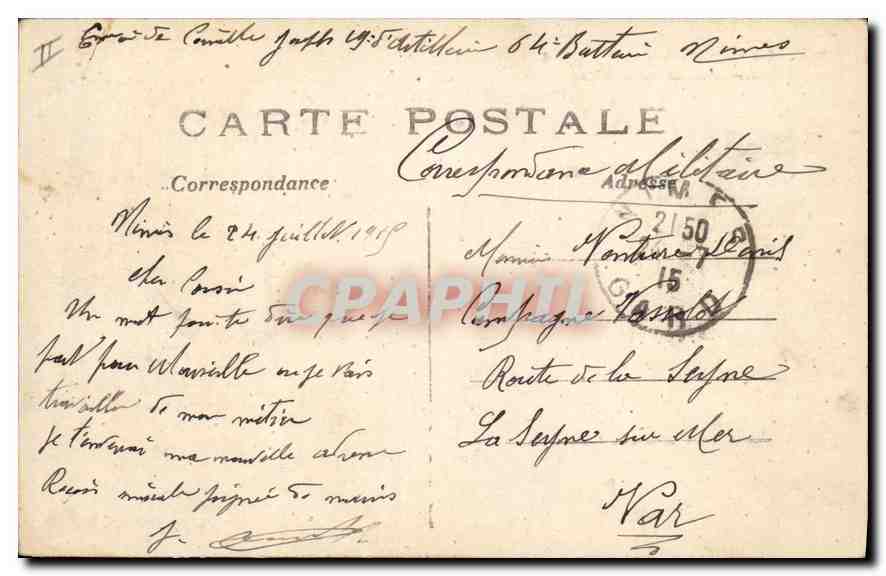 II
Envoi de Camille Joseph 19e d'artillerie 64e Batterie Nimes
CARTE POSTALE
Correspondance Militaire
Correspondance
Adresse
NIMES
21 50
7
15
GARD
Nimes le 24 juillet 1915
cher Cousin
Un mot pour te dire que je
part pour Marseille ou je vais
travailler de mon métier
je t'enverrai ma nouvelle adresse
Reçois poignée de mains
J.
Monsieur Denis
Campagne
Route de la Seyne
La Seyne sur Mer
Var
CPAPHIL